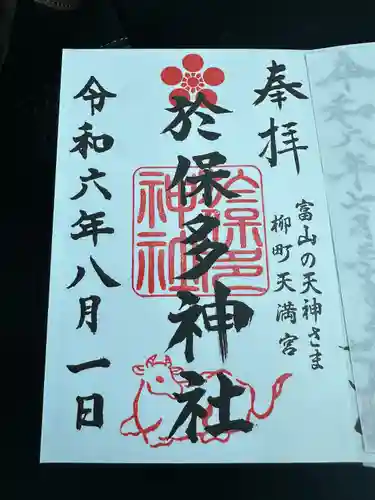 奉拝
富山の天神さま
柳町天満宮
於保多神社
於保多
神社
令和六年八月一日